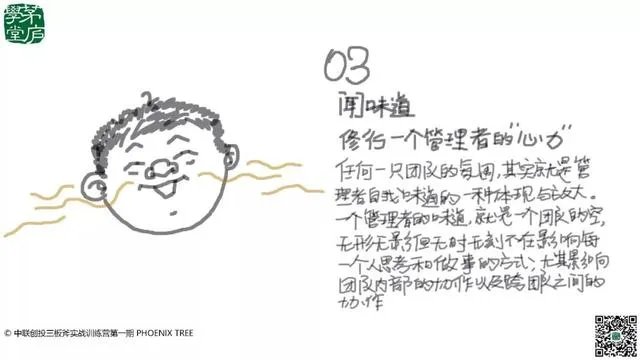 茅庐
學堂
03
闻味道
修行一个管理者的"心力"
任何一只团队的氛围,其实就是管
理者自我味道的一种体现与放大。
一个管理者的味道,就是一个团队的空,
无形无影但无时无刻不在影响每
一个人思考和做事的方式;尤其影响
团队内部的协作以及跨团队之间的
协作
© 中联创投三板斧实战训练营第一期 PHOENIX TREE